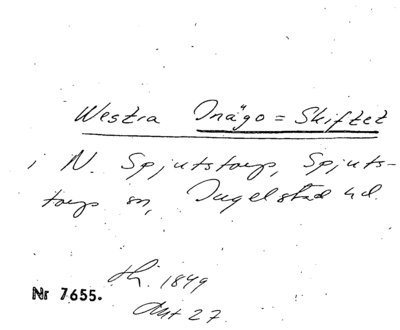 Westra Inägo=Skiftet
i N. Spjutstorp, Spjuts-
torps sn, Ingelstad hd.
1849
Nr 7655.
27.